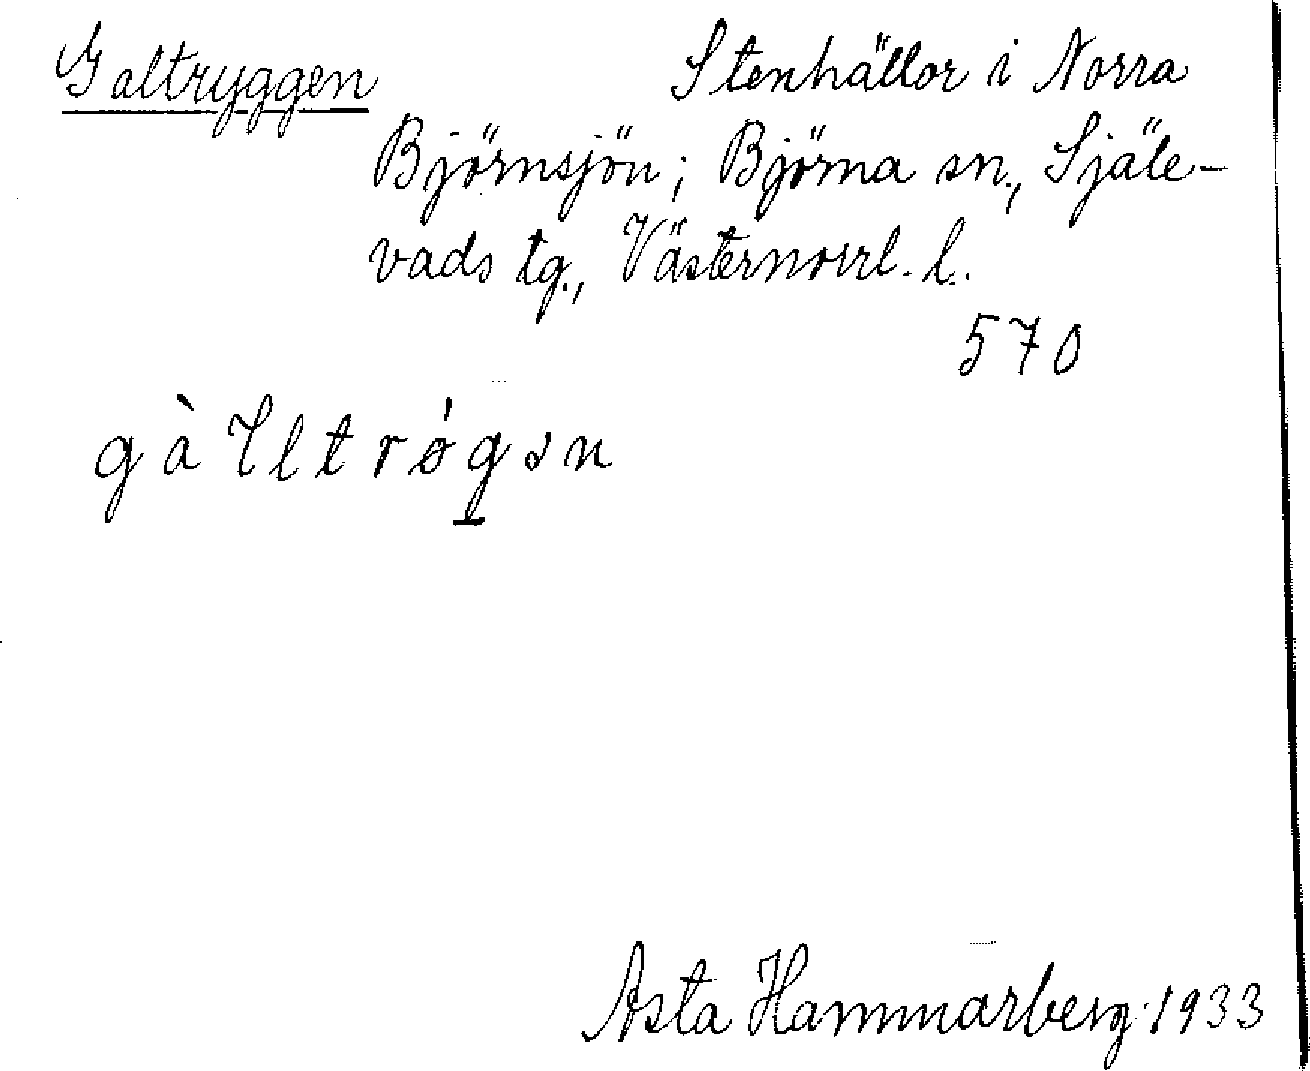 Galtryggen Stenhällor i Norra
Björnsjön; Björna sn., Själe-
vads tg., Västernorrl. l.
570
gàlltrǿgən
Asta Hammarberg 1933